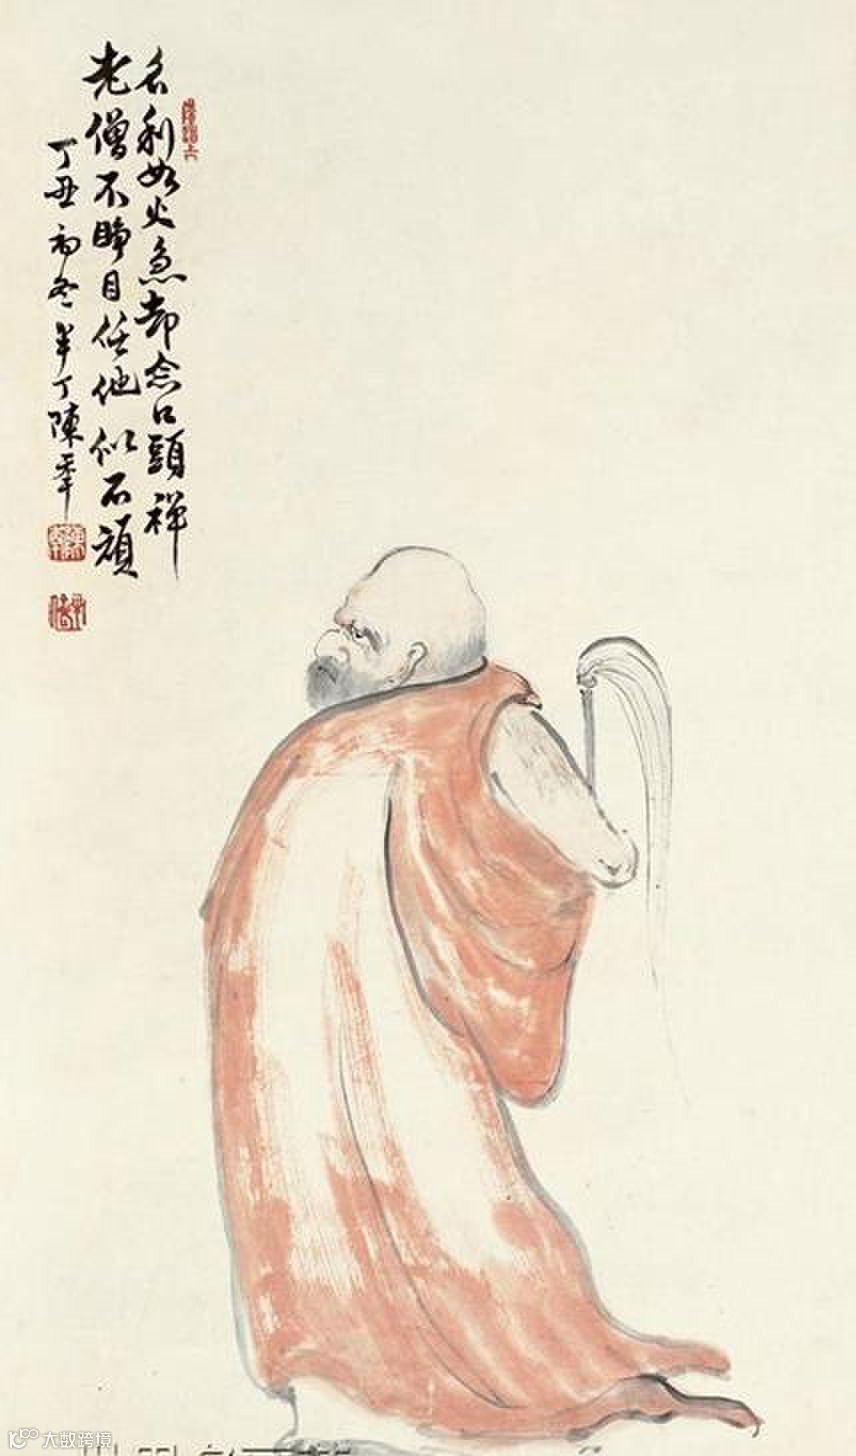 名利如火急却念口頭禅
老僧不睁目任他似石頑
丁丑初冬半丁陳年
大数跨境